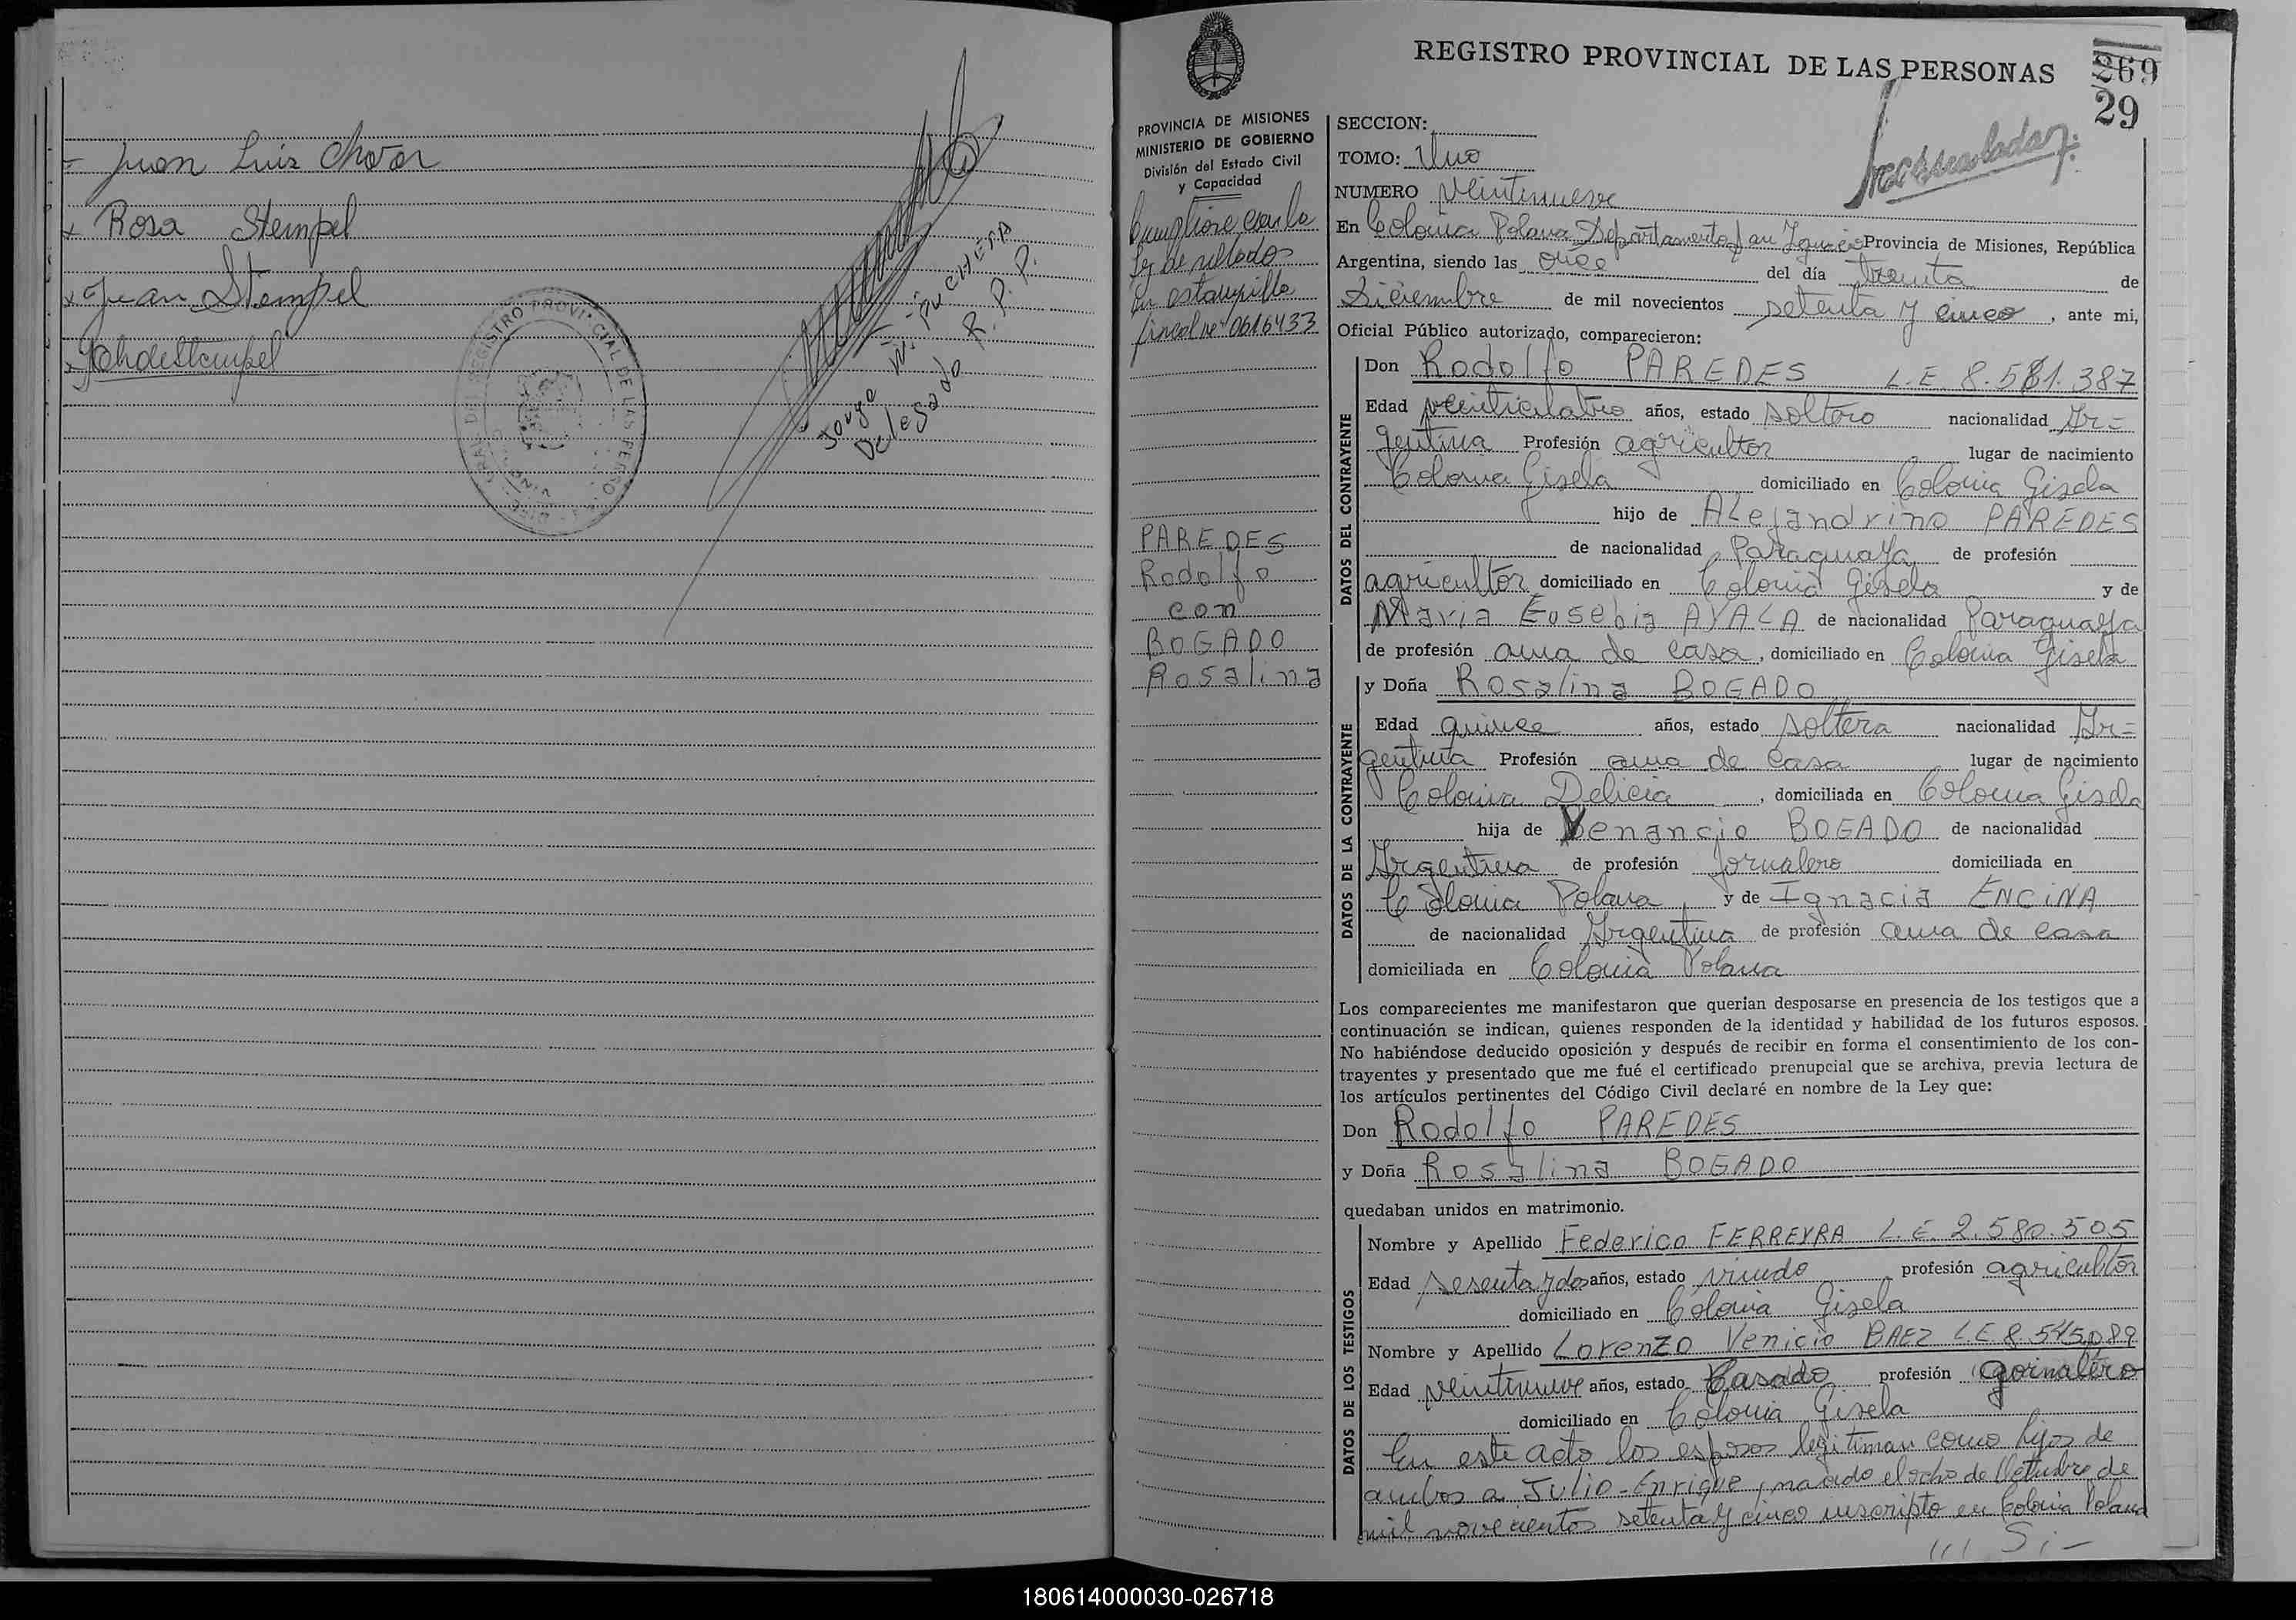 = Juan Luis Chovar
x Rosa Stempel
x Juan Stempel
Jorge W. PUCHETA
Delegado R. P. P.
REGISTRO PROVINCIAL DE LAS PERSONAS
269
29
PROVINCIA DE MISIONES
MINISTERIO DE GOBIERNO
División del Estado Civil
y Capacidad
Cumpliose con la
ley de sellados
en estampilla
fiscal nº 0616433
PAREDES
Rodolfo
con
BOGADO
Rosalina
SECCION:
TOMO: Uno
NUMERO Veintinueve
En Colonia Polana Departamento San Ignacio Provincia de Misiones, República
Argentina, siendo las once del día treinta de
Diciembre de mil novecientos setenta y cinco, ante mi,
Oficial Público autorizado, comparecieron:
DATOS DEL CONTRAYENTE
Don Rodolfo PAREDES L.E. 8.581.387
Edad veinticuatro años, estado soltero nacionalidad Ar=
gentina Profesión agricultor lugar de nacimiento
Colonia Gisela domiciliado en Colonia Gisela
hijo de Alejandrino PAREDES
de nacionalidad Paraguaya de profesión
agricultor domiciliado en Colonia Gisela y de
Maria Eusebia AYALA de nacionalidad Paraguaya
de profesión ama de casa, domiciliado en Colonia Gisela
DATOS DE LA CONTRAYENTE
y Doña Rosalina BOGADO
Edad quince años, estado soltera nacionalidad Ar=
gentina Profesión ama de casa lugar de nacimiento
Colonia Delicia, domiciliada en Colonia Gisela
hija de Venancio BOGADO de nacionalidad
Argentina de profesión Jornalero domiciliada en
Colonia Polana y de Ignacia ENCINA
de nacionalidad Argentina de profesión ama de casa
domiciliada en Colonia Polana
Los comparecientes me manifestaron que querían desposarse en presencia de los testigos que a
continuación se indican, quienes responden de la identidad y habilidad de los futuros esposos.
No habiéndose deducido oposición y después de recibir en forma el consentimiento de los con-
trayentes y presentado que me fué el certificado prenupcial que se archiva, previa lectura de
los artículos pertinentes del Código Civil declaré en nombre de la Ley que:
Don Rodolfo PAREDES
y Doña Rosalina BOGADO
quedaban unidos en matrimonio.
DATOS DE LOS TESTIGOS
Nombre y Apellido Federico FERREYRA L.E. 2.580.505
Edad sesenta y dos años, estado viudo profesión agricultor
domiciliado en Colonia Gisela
Nombre y Apellido Lorenzo Venicio BAEZ L.E 8.545.089
Edad veintinueve años, estado Casado profesión jornalero
domiciliado en Colonia Gisela
En este acto los esposos legitiman como hijos de
ambos a Julio-Enrique, nacido el ocho de Octubre de
mil novecientos setenta y cinco inscripto en Colonia Polana
/// Si-
180614000030-026718